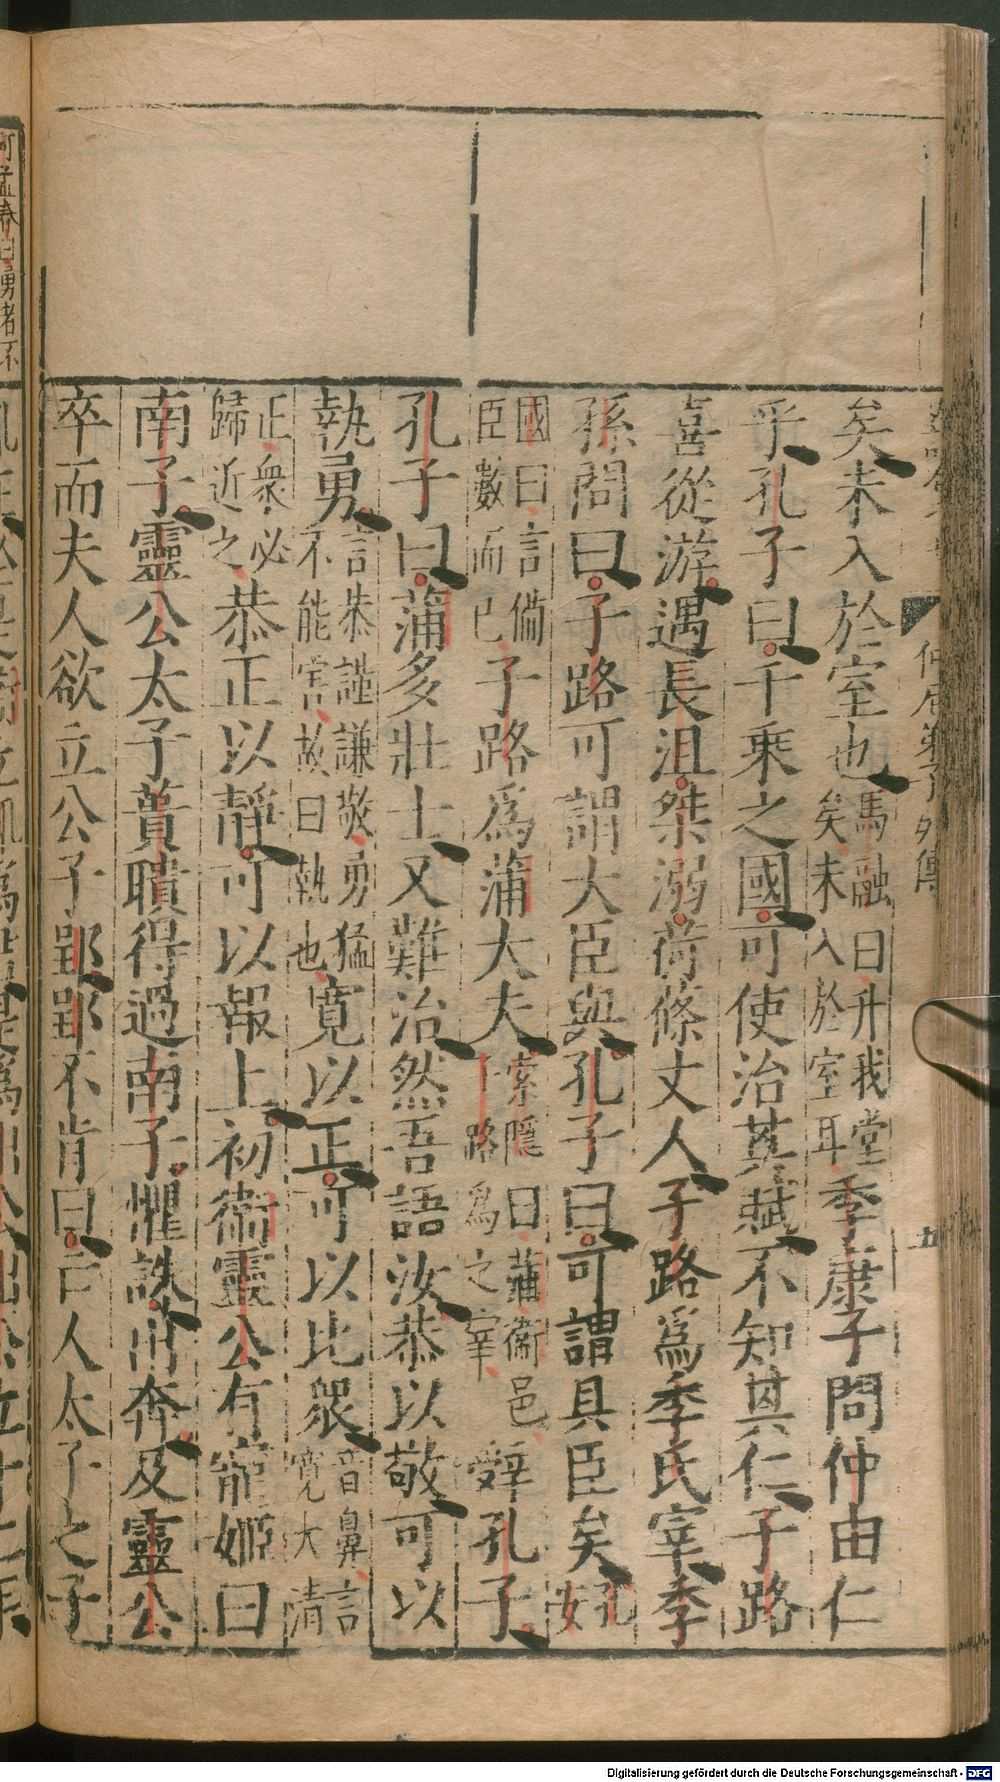 仲尼弟子列傳
五
矣未入於室也馬融曰升我堂矣未入於室耳季康子問仲由仁
乎孔子曰千乘之國可使治其賦不知其仁子路
喜從游遇長沮桀溺荷蓧丈人子路爲季氏宰季
孫問曰子路可謂大臣與孔子曰可謂具臣矣孔安
國曰言備臣數而已子路爲蒲大夫索隱曰蒲衛邑子路爲之宰辭孔子
孔子曰蒲多壯士又難治然吾語汝恭以敬可以
執勇言恭謹謙敬勇猛不能害故曰執也寬以正可以比衆音鼻言寬大清
正衆必歸近之恭正以靜可以報上初衛靈公有寵姬曰
南子靈公太子蕢聵得過南子懼誅出奔及靈公
卒而夫人欲立公子郢郢不肯曰亡人太子之子
何孟春曰勇者不
Digitalisierung gefördert durch die Deutsche Forschungsgemeinschaft - DFG